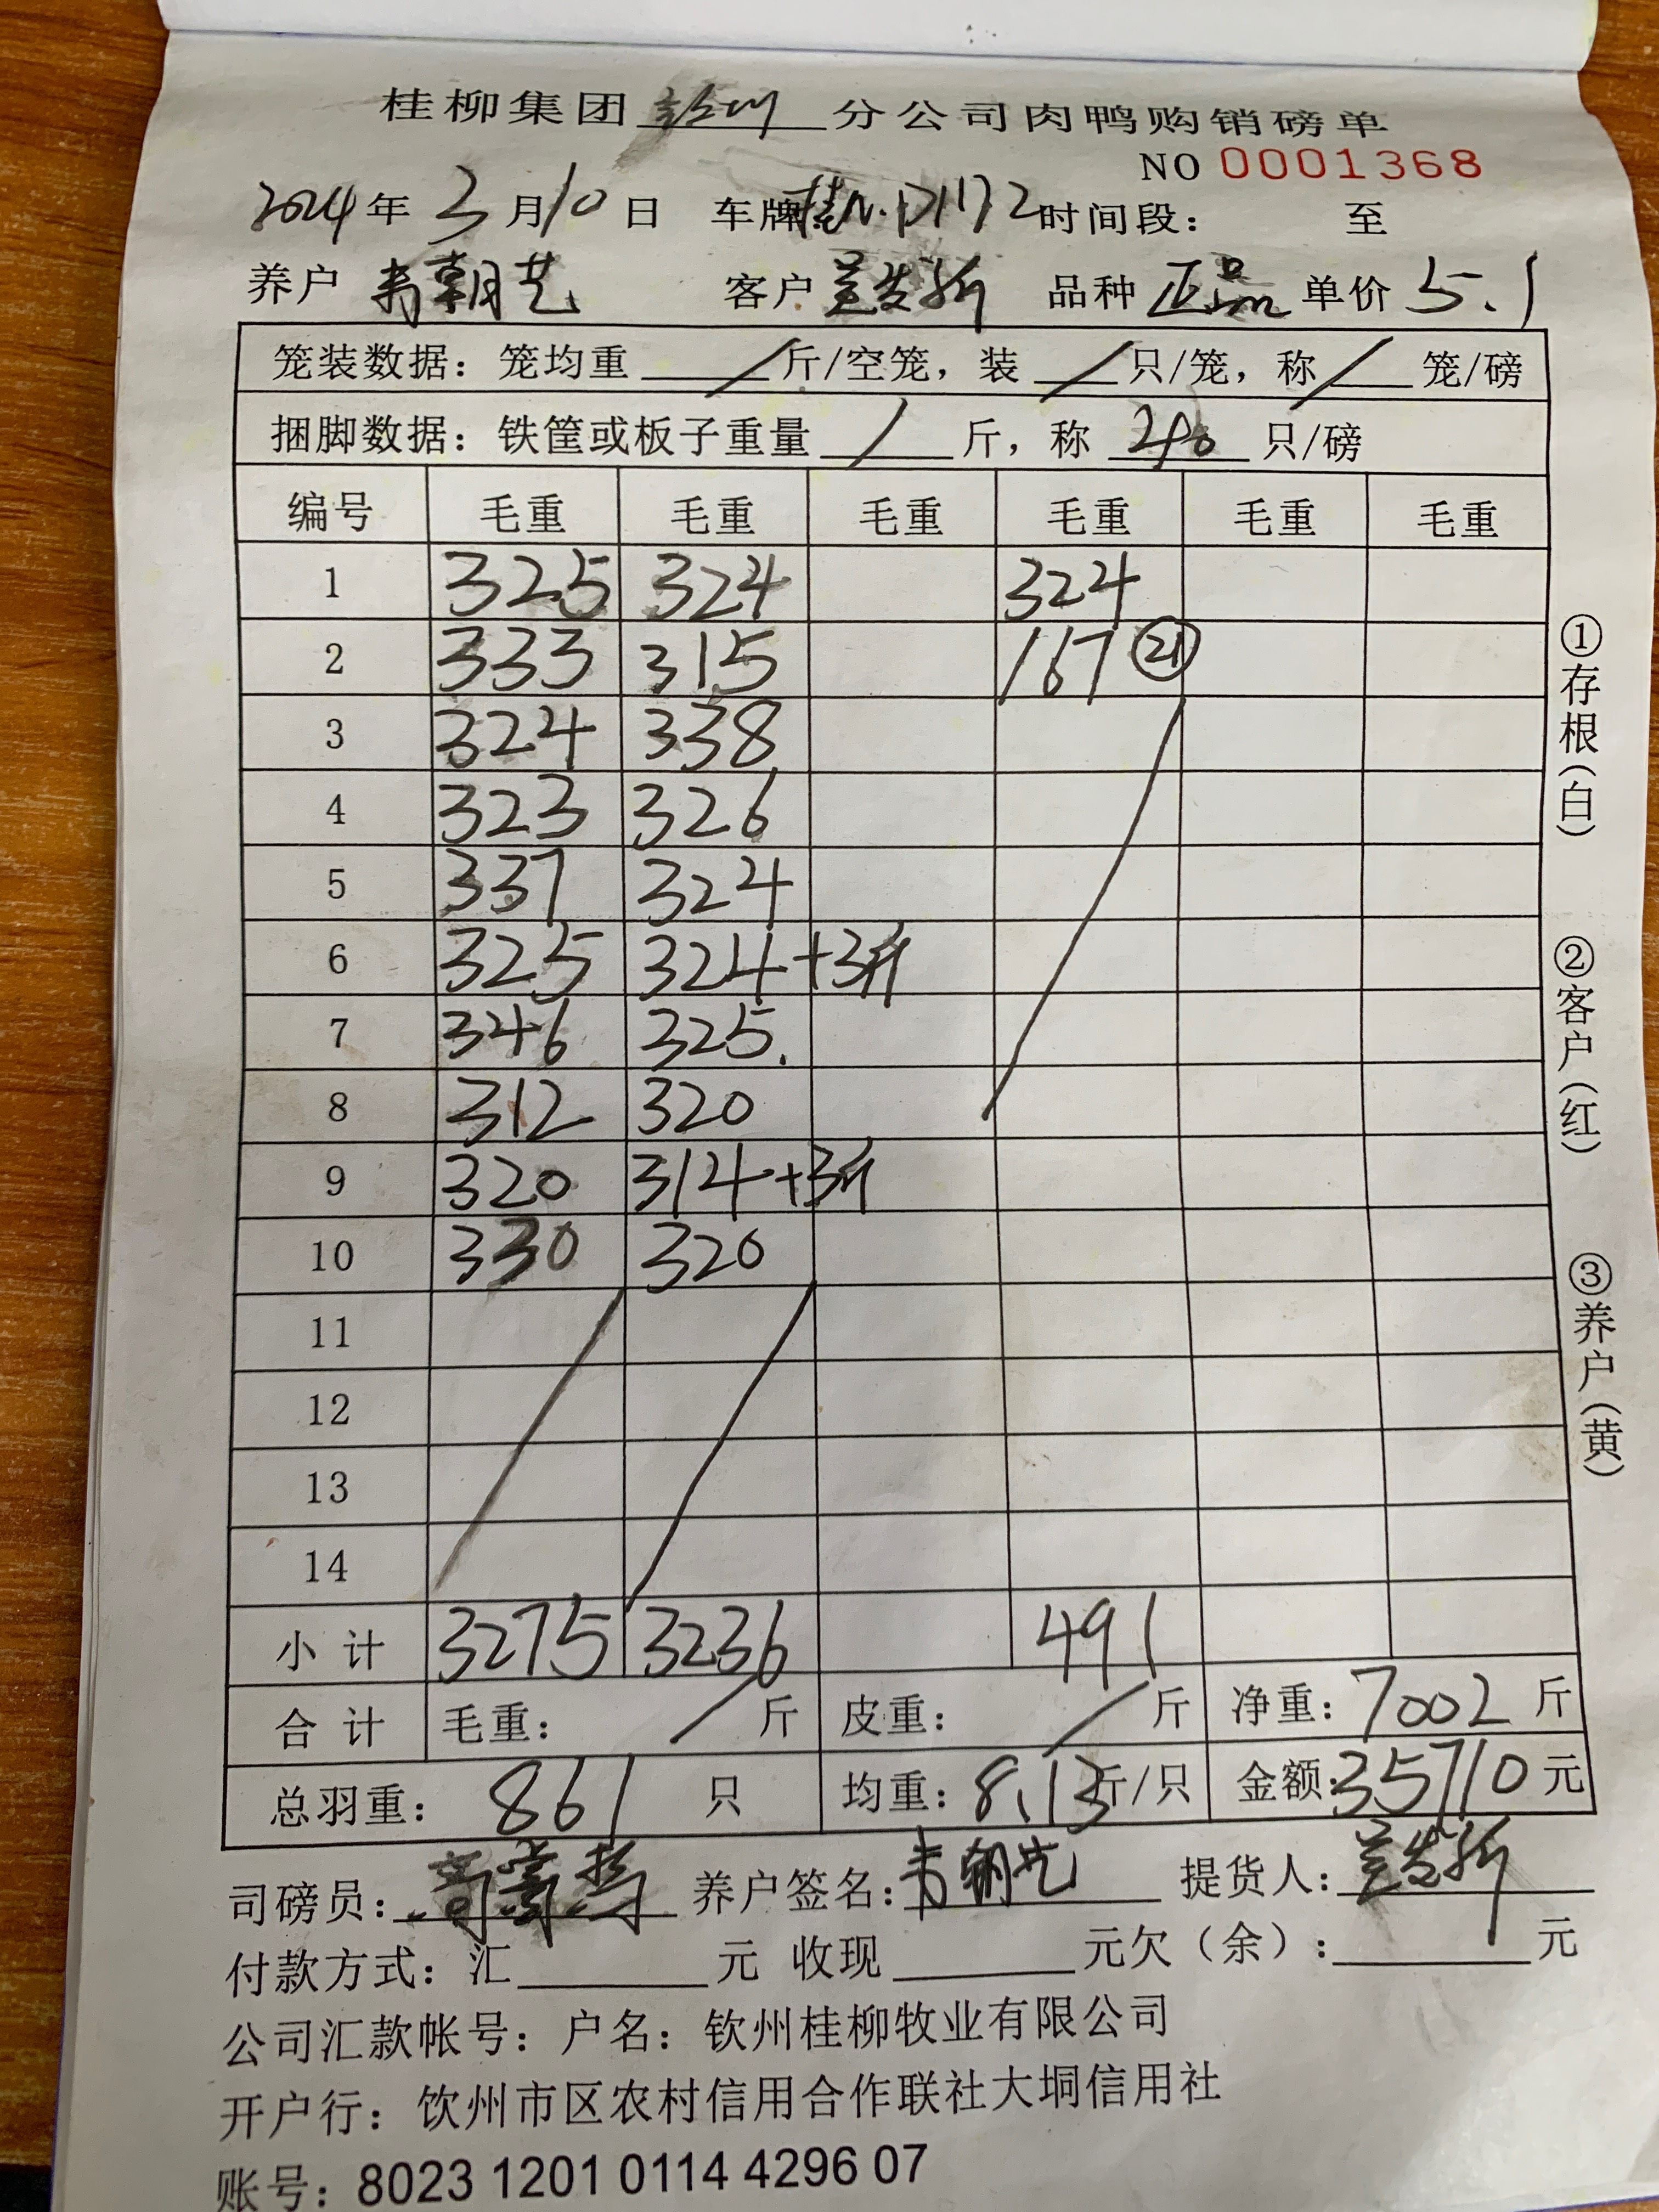 桂柳集团 分公司肉鸭购销磅单
NO 0001368
2024年 3月10日 车牌: 时间段: 至
养户 韦朝艺 客户 品种 正品 单价 5.1
笼装数据: 笼均重 / 斤/空笼, 装 / 只/笼, 称 / 笼/磅
捆脚数据: 铁筐或板子重量 / 斤, 称 只/磅
编号 毛重 毛重 毛重 毛重 毛重 毛重
1 325 324 324
2 333 315 167 ㉑
3 324 338
4 323 326
5 337 324
6 325 324+3斤
7 346 325.
8 312 320
9 320 314+3斤
10 330 320
11
12
13
14
小计 3275 3236 491
合计 毛重: / 斤 皮重: / 斤 净重: 7002 斤
总羽重: 861 只 均重: 8.13斤/只 金额:35710元
司磅员: 养户签名:韦朝艺 提货人:
付款方式: 汇 元 收现 元欠(余): 元
公司汇款帐号: 户名: 钦州桂柳牧业有限公司
开户行: 钦州市区农村信用合作联社大垌信用社
账号: 8023 1201 0114 4296 07
①存根(白)
②客户(红)
③养户(黄)